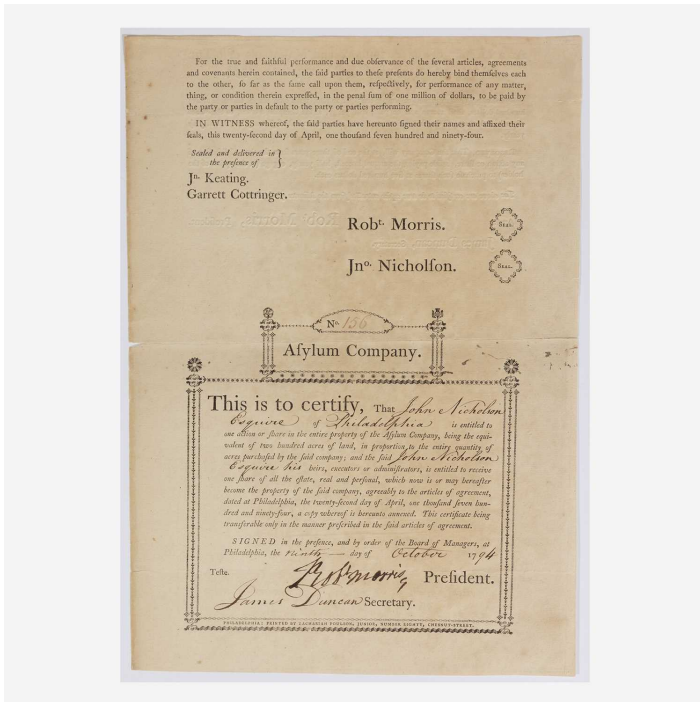 For the true and faithful performance and due observance of the ſeveral articles, agreements
and covenants herein contained, the ſaid parties to theſe preſents do hereby bind themſelves each
to the other, ſo far as the ſame call upon them, reſpectively, for performance of any matter,
thing, or condition therein expreſſed, in the penal ſum of one million of dollars, to be paid by
the party or parties in default to the party or parties performing.
IN WITNESS whereof, the ſaid parties have hereunto ſigned their names and affixed their
ſeals, this twenty-ſecond day of April, one thouſand ſeven hundred and ninety-four.
Sealed and delivered in
the preſence of
Jn. Keating.
Garrett Cottringer.
Robt. Morris.
Seal.
Jno. Nicholſon.
Seal.
No. 156
Aſylum Company.
This is to certify, That John Nicholson
Esquire of Philadelphia is entitled to
one action or ſhare in the entire property of the Aſylum Company, being the equi-
valent of two hundred acres of land, in proportion to the entire quantity of
acres purchaſed by the ſaid company; and the ſaid John Nicholson
Esquire his heirs, executors or adminiſtrators, is entitled to receive
one ſhare of all the eſtate, real and perſonal, which now is or may hereafter
become the property of the ſaid company, agreeably to the articles of agreement,
dated at Philadelphia, the twenty-ſecond day of April, one thouſand ſeven hun-
dred and ninety-four, a copy whereof is hereunto annexed. This certificate being
transferable only in the manner preſcribed in the ſaid articles of agreement.
SIGNED in the preſence, and by order of the Board of Managers, at
Philadelphia, the ninth day of October 1794
Teste.
Robt Morris, President.
James Duncan Secretary.
PHILADELPHIA: PRINTED BY ZACHARIAH POULSON, JUNIOR, NUMBER EIGHTY, CHESNUT-STREET.